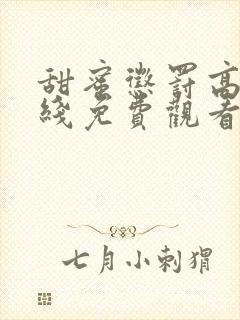 甜蜜懲罰高
綫免費觀看
七月小刺猬